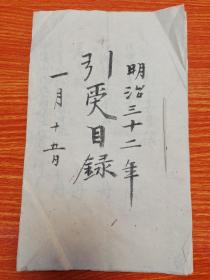 明治三十二年
引受目録
一月十五日